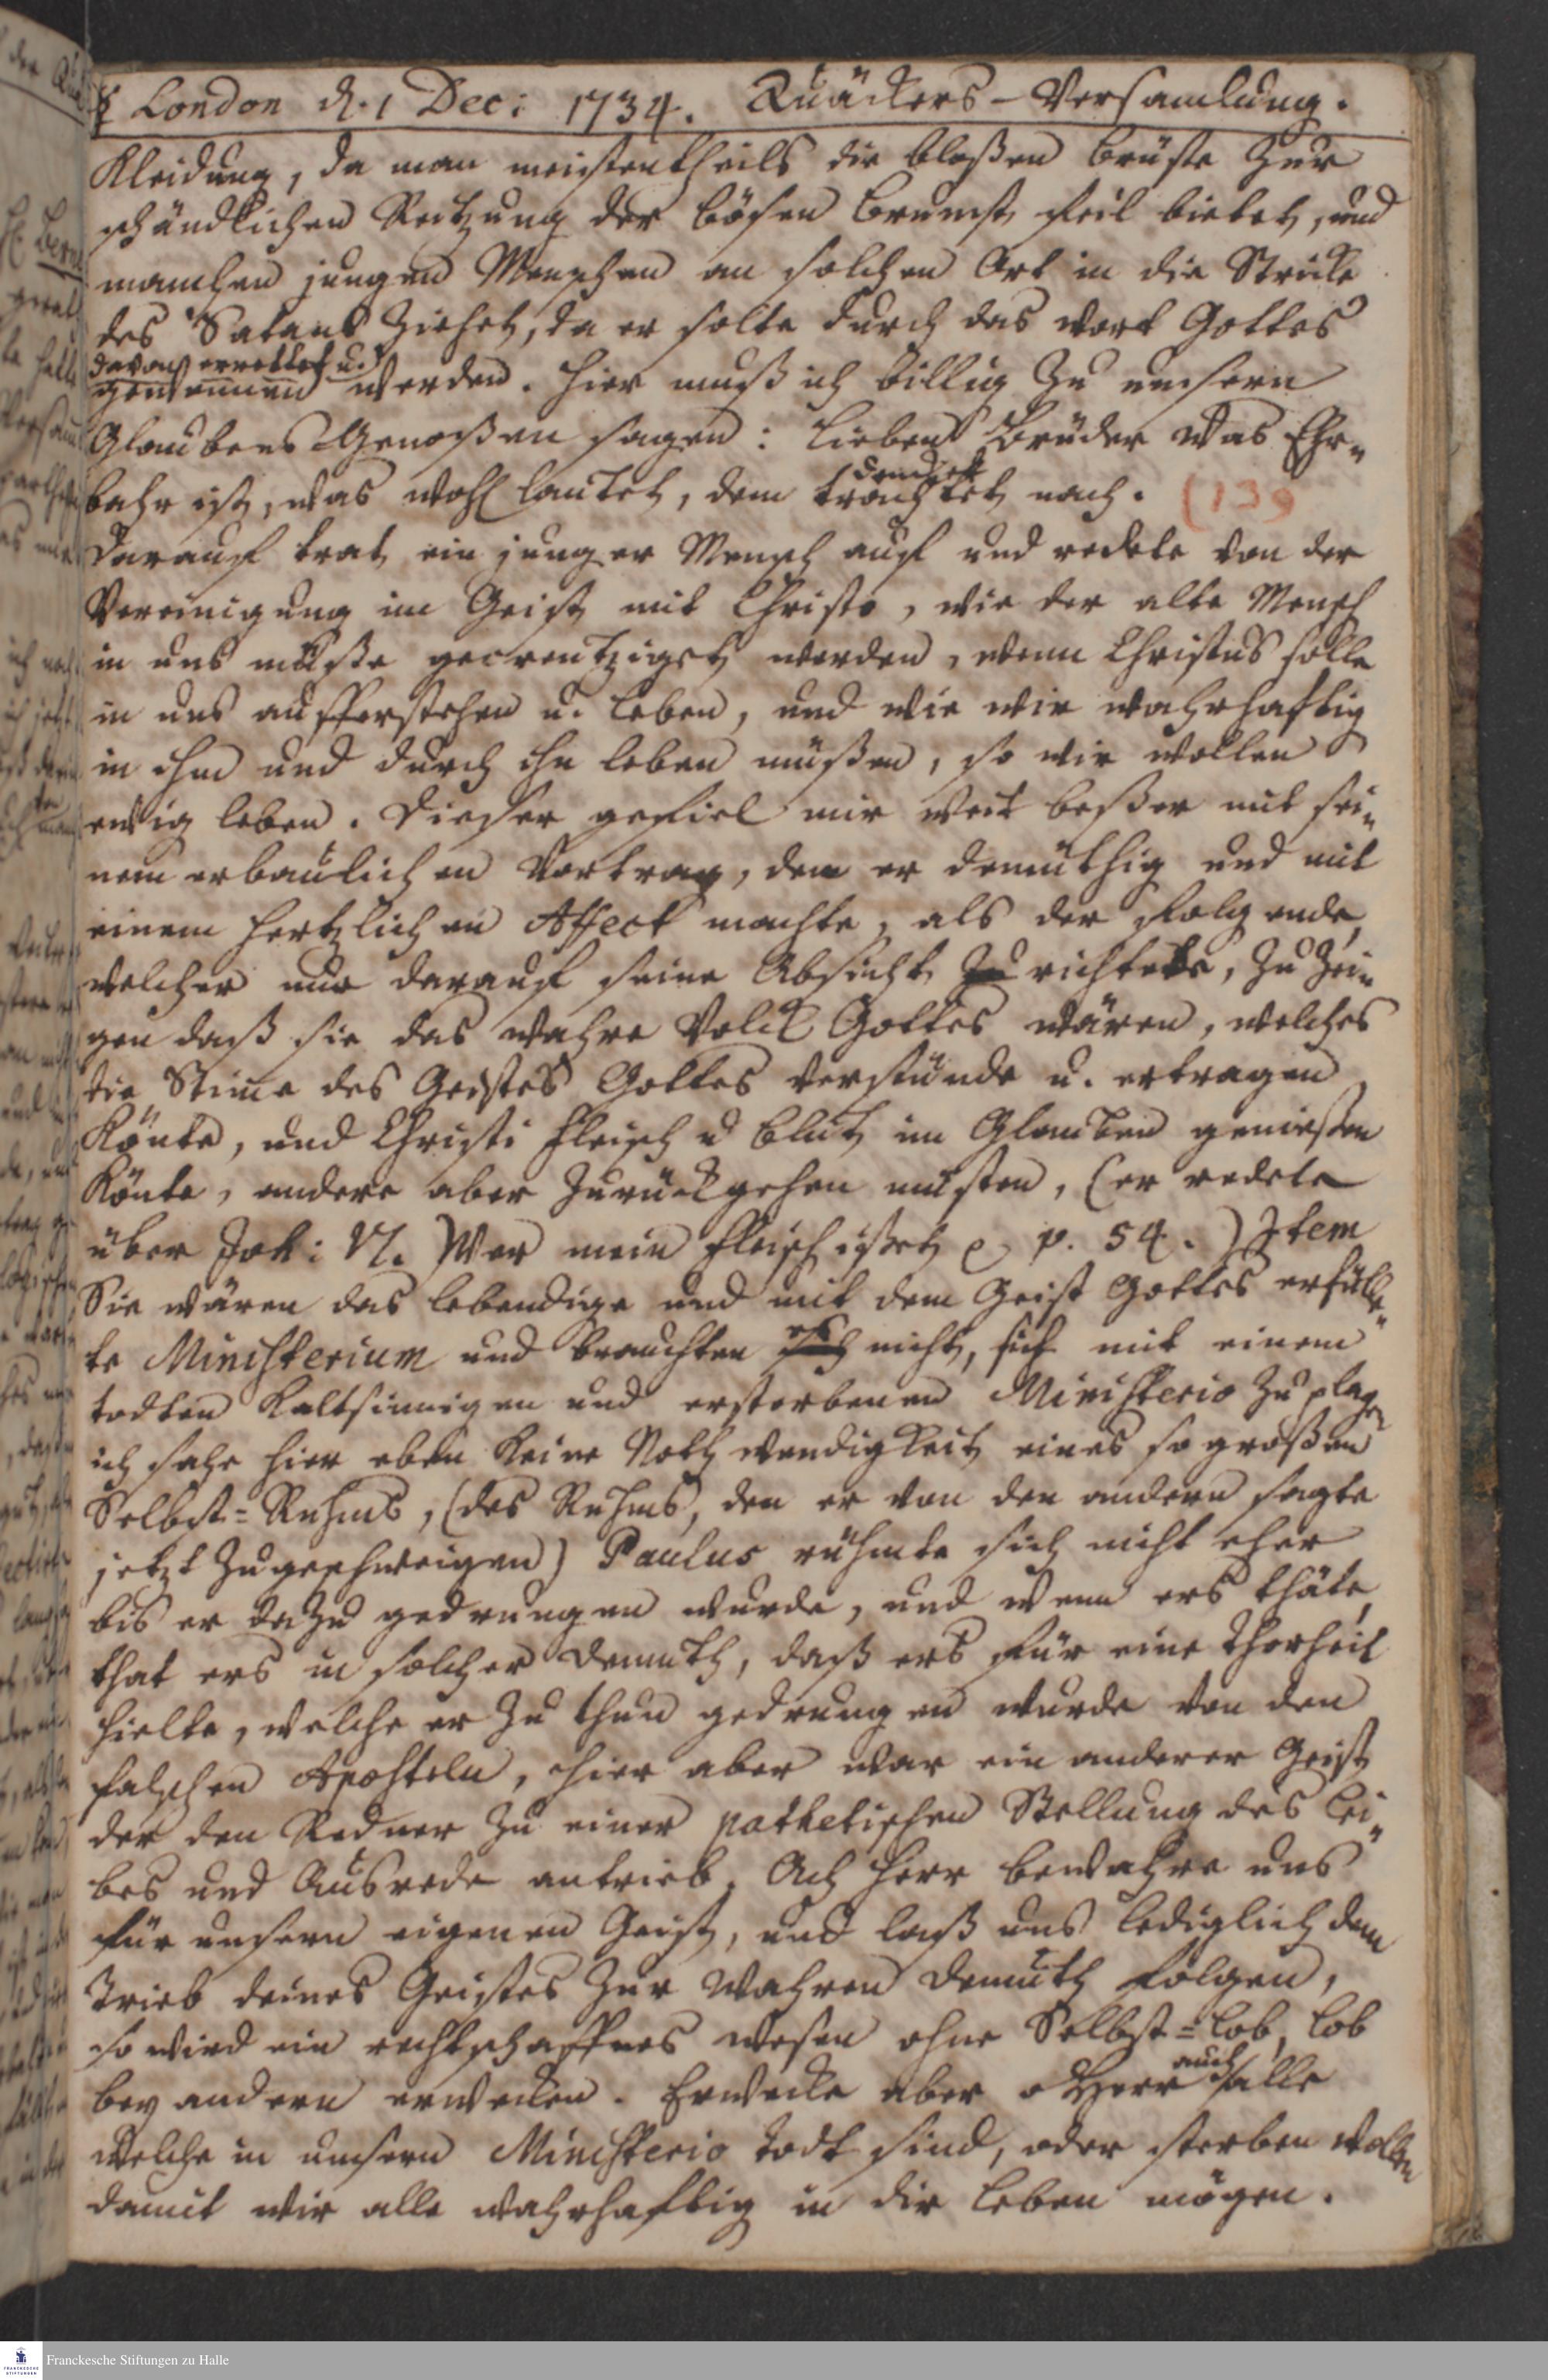 London d. 1 Dec: 1734. Quäckers-Versamlung.
Kleidung, da man meistentheils die bloßen Brüste zur
schändlichen Reitzung der bösen Brunst feil bietet, und
manchen jungen Menschen an solchen Ort in die Stricke
des Satans ziehet, da er solte durch das Wort Gottes
davon errettet u.
gewonnen werden. Hier muß ich billig zu unsern
Glaubens-Genoßen sagen: Lieben Brüder was Ehr-
bahr ist, was wohl lautet, dem trachtet nach. (139
Darauf trat ein junger Mensch auf und redete von der
Vereinigung im Geist mit Christo, wie der alte Mensch
in uns müße gecreutziget werden, wenn Christus solle
in uns aufferstehen u. leben, und wie wir wahrhafftig
in ihm und durch ihn leben müßen, so wir wollen
ewig leben. Dieser gefiel mir weit beßer mit sei-
nem erbaulichen Vortrag, den er demüthig und mit
einem hertzlichen Affect machte, als der folgende,
welcher nur darauf seine Absicht zu richtete, zu zei-
gen daß sie das wahre Volck Gottes wären, welches
die Stime des Geistes Gottes verstünde u. ertragen
könte, und Christi Fleisch u Blut im Glauben genießen
könte, andere aber zurückgehen müsten, (er redete
über Joh: VI. Wer mein Fleisch ißet p v. 54.) Item
Sie wären das lebendige und mit dem Geist Gottes erfüll-
te Ministerium und brauchten es nicht, sich mit einem
todten kaltsinnigen und erstorbenen Ministerio zu plagen
ich sahe hier eben keine Nothwendigkeit eines so großen
Selbst-Ruhms, (des Ruhms, den er von den andern sagte
jetzt zugeschweigen) Paulus rühmte sich nicht eher
bis er dazu gedrungen wurde, und wenn ers thäte,
that ers in solcher Demuth, daß ers für eine Thorheit
hielte, welche er zu thun gedrungen wurde von den
falschen Aposteln, hier aber war ein anderer Geist
der den Redner zu einer pathetischen Stellung des Lei-
bes und Ausrede antrieb. Ach Herr bewahre uns
für unsern eigenen Geist, und laß uns lediglich dem
Trieb deines Geistes zur wahren Demuth folgen,
so wird ein rechtschaffnes Wesen ohne Selbst-Lob, Lob
auch
bey andern erwecken. Erwecke aber o Herr alle
welche in unsern Ministerio todt sind, oder sterben wollen
damit wir alle wahrhafftig in dir leben mögen.
FRANCKESCHE STIFTUNGEN
Franckesche Stiftungen zu Halle